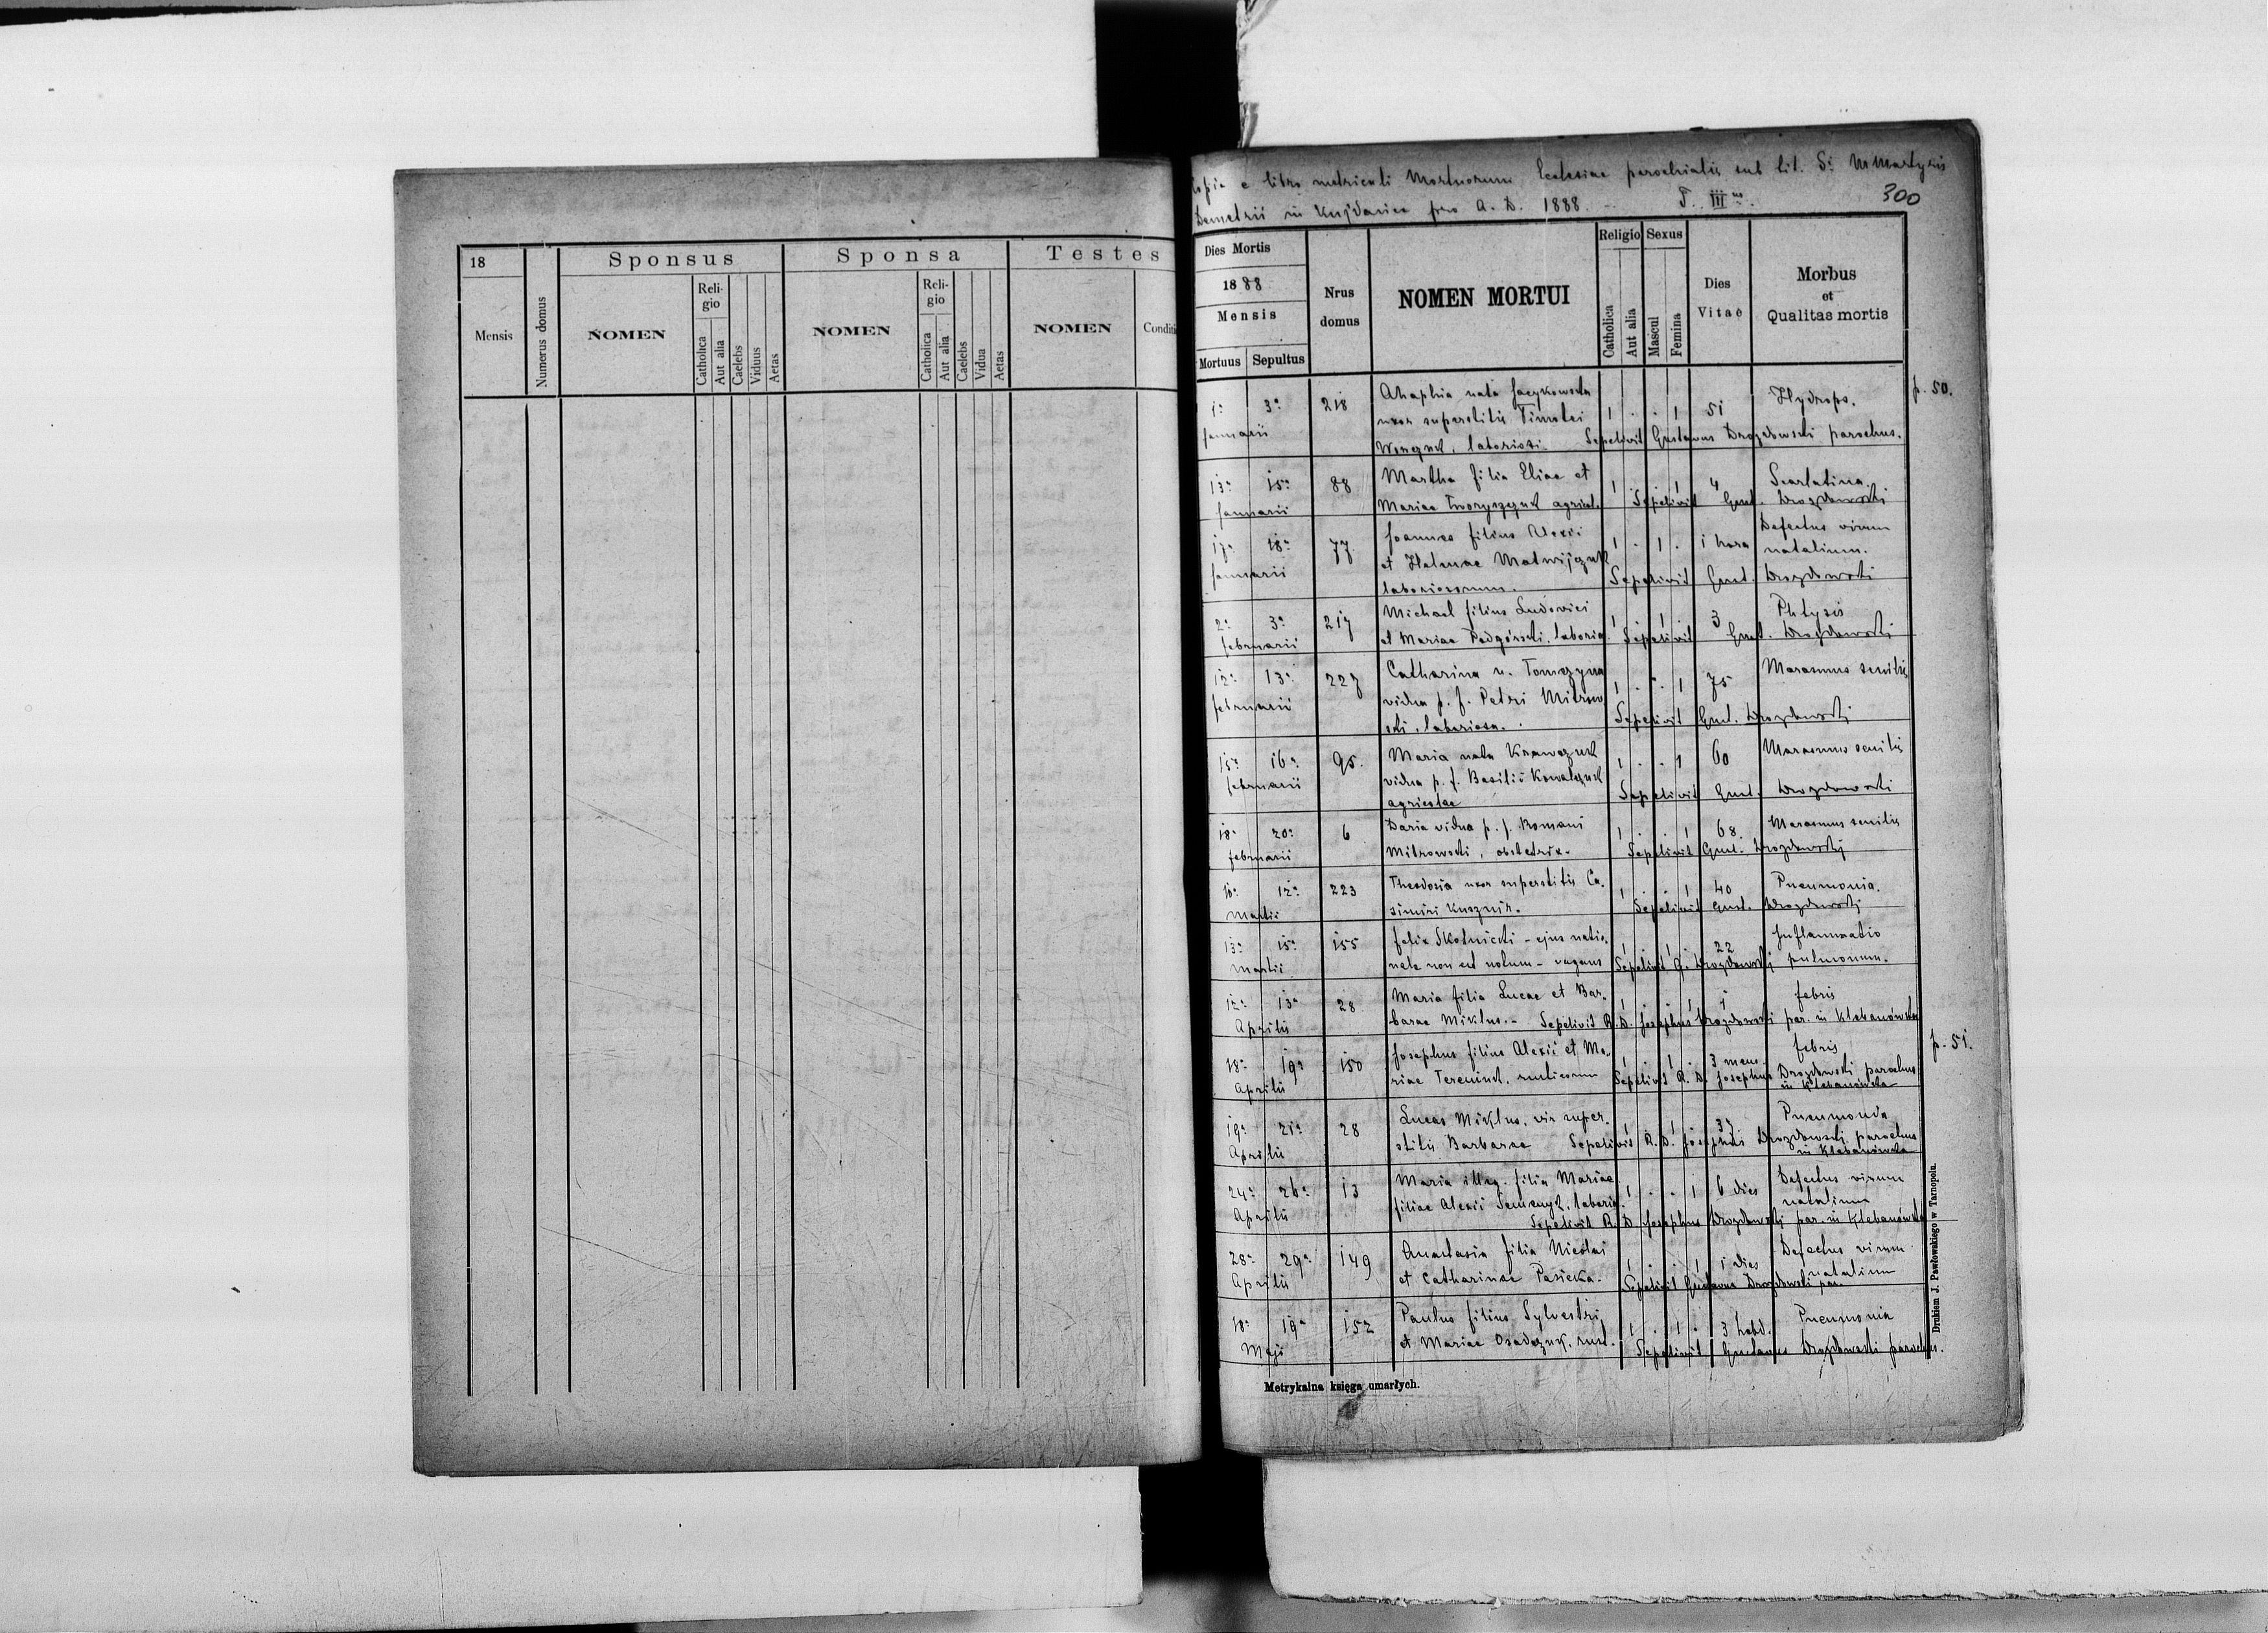 18
Mensis
Numerus domus
Sponsus
NOMEN
Reli-
gio
Catholica
Aut alia
Caelebs
Viduus
Aetas
Sponsa
NOMEN
Reli-
gio
Catholica
Aut alia
Caelebs
Vidua
Aetas
Testes
NOMEN
Conditi
Copia e libro metricali Mortuorum Ecclesiae parochialis sub tit. S: MMartyris
Demetrii in Kujdance pro A. D. 1888. T. III
300
Dies Mortis
1888
Mensis
Mortuus Sepultus
Nrus
domus
NOMEN MORTUI
Religio
Catholica
Aut alia
Sexus
Mascul
Femina
Dies
Vitae
Morbus
et
Qualitas mortis
p. 50.
1a 3a 218 Ahaphia nata Jacykowska 1 . . 1 51 Hydrops.
Januarii uxor superstitis Timotei
laboriosi. Sepelivit Gustavus Drozdowski parochus.
13a 15a 88 Martha filia Eliae et 1 . . 1 4 Scarlatina.
Januarii Mariae Tworyszczuk agricol. Sepelivit Gust. Drozdowski
17a 18a 77 Joannes filius Alexii 1 . 1 . 1 hora Defectus virium
Januarii et Helenae Matwijczuk natalium.
laboriosorum. Sepelivit Gust. Drozdowski
2a 3a 217 Michael filius Ludovici 1 . 1 . 3 Phtysis
februarii et Mariae Podgórski, laborio. Sepelivit Gust. Drozdowski
12a 13a 227 Catharina n. Tomczyna 1 . . 1 75 Marasmus senilis
februarii vidua p. f. Petri Mitrow
ski, laboriosa. Sepelivit Gust. Drozdowski
15a 16a 95. Maria nata Krawczuk 1 . . 1 60 Marasmus senilis
februarii vidua p. f. Basilii Kowalczuk
agricolae Sepelivit Gust. Drozdowski
18a 20a 6 Daria vidua p. f. Romani 1 . . 1 68. Marasmus senilis
februarii Mitrowski, obstetrix. Sepelivit Gust. Drozdowski
10a 12a 223 Theodosia uxor superstitis Ca. 1 . . 1 40 Pneumonia.
Martii simiri Kusznir. Sepelivit Gust. Drozdowski
13a 15a 155 felix Skotnicki - ejus natio. 1 . 1 . 22 Inflammatio
Martii nale non est notum - vagans Sepelivit G. Drozdowski pulmonum.
12a 13a 28 Maria filia Lucae et Bar. 1 . . 1 1 febris
Aprilis barae Miklus. - Sepelivit R. D. Josephus Drozdowski par. in Klebanówka
p. 51.
18a 19a 150 Josephus filius Alexii et Ma. 1 . 1 . 3 mens. febris
Aprilis riae rusticorum Sepelivit R. D. Josephus Drozdowski parochus
in Klebanówka
19a 21a 28 Lucas Miklus, vir super. 1 . 1 . 37 Pneumonia
Aprilis stitis Barbarae Sepelivit R. D. Josephus Drozdowski parochus
in Klebanówka
24a 26a 13 Maria illeg. filia Mariae 1 . . 1 6 dies Defectus virium
Aprilis filiae Alexii laborio. natalium
Sepelivit R. D. Josephus Drozdowski par. in Klebanówka
28a 29a 149 Anastasia filia Nicolai 1 . . 1 1 dies Defectus virium
Aprilis et Catharinae Pasieka. natalium
Sepelivit Gustavus Drozdowski par.
18a 19a 152 Paulus filius Sylvestri 1 . 1 . 3 hebd. Pneumonia
Maji et Mariae Osadczuk, rust. Sepelivit Gustavus Drozdowski parochus.
Metrykalna księga umarłych.
Drukiem J. Pawłowskiego w Tarnopolu.